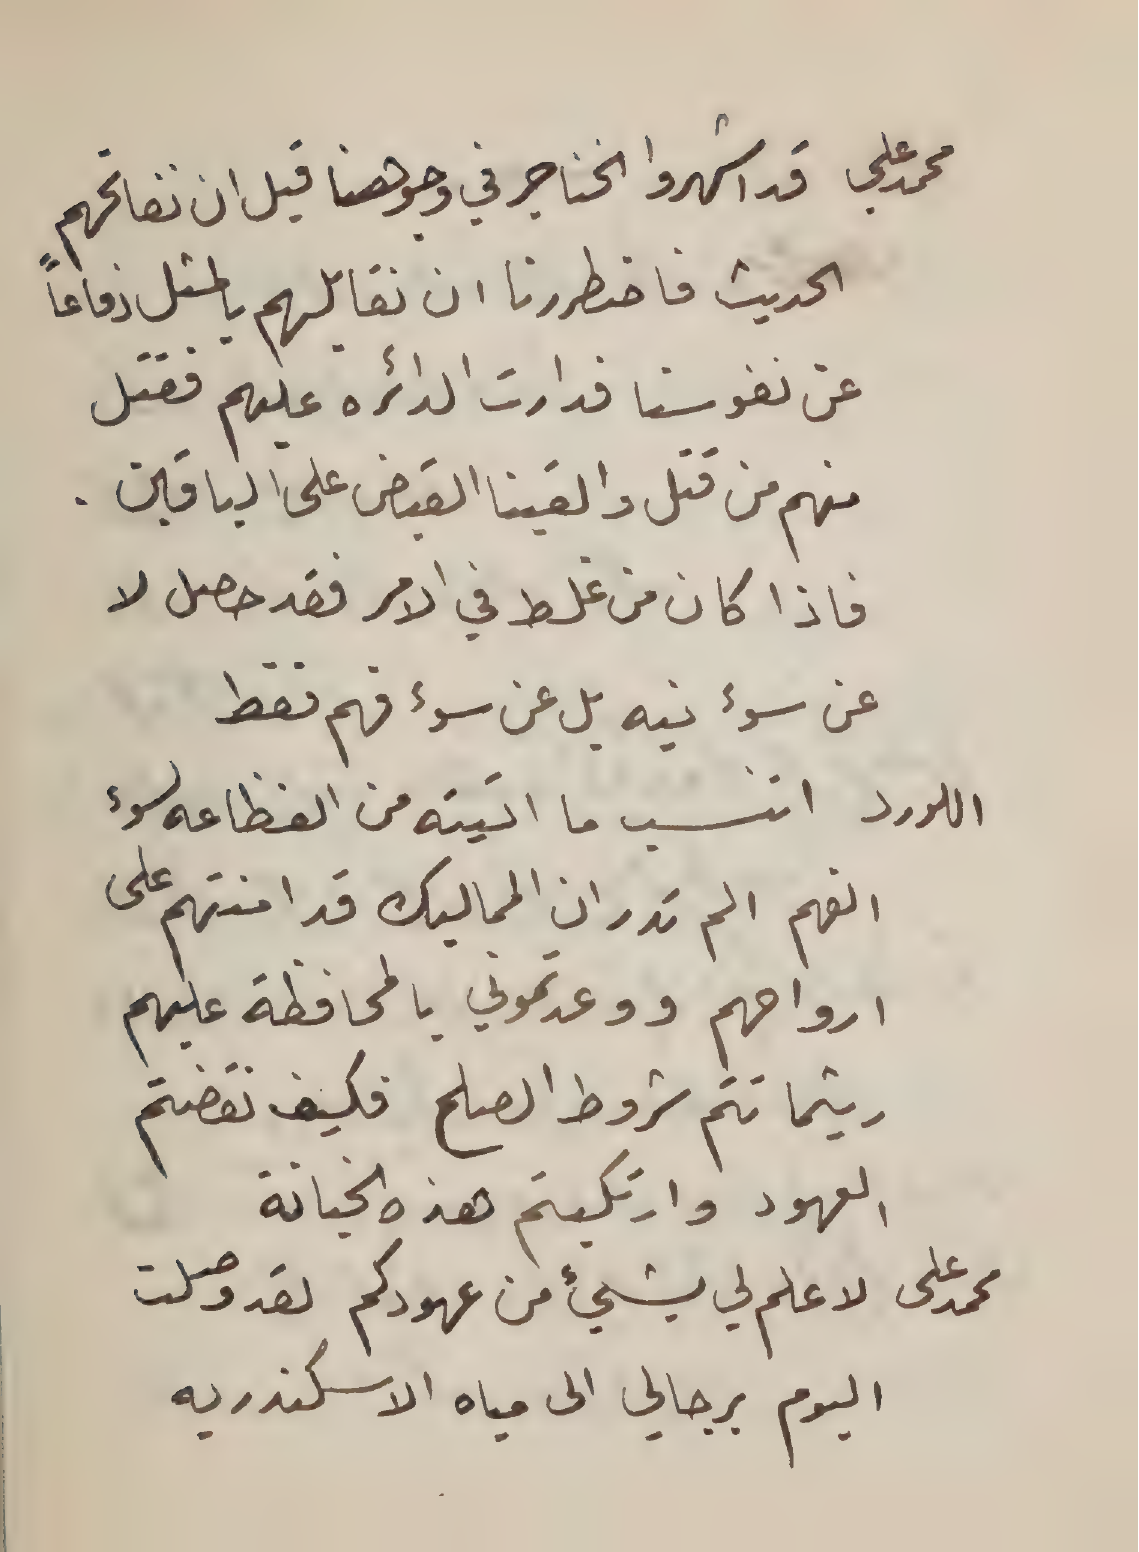 محمد علي قد اشهروا الخناجر في وجوهنا قبل ان نفاتحهم
الحديث فاضطررنا ان نقابلهم بالمثل دفاعاً
عن نفوسنا فدارت الدائره عليهم فقتل
منهم من قتل والقينا القبض على الباقين .
فاذا كان من غلط في الامر فقد حصل لا
عن سوء نيه بل عن سوء فهم فقط
اللورد اتنسب ما اتيته من الفظاعه لسوء
الفهم الم تدر ان المماليك قد امنتهم على
ارواحهم ووعدتموني بالمحافظة عليهم
ريثما تتم شروط الصلح فكيف نقضتم
العهود وارتكبتم هذه الخيانة
محمد على لا علم لي بشيئ من عهودكم لقد وصلت
اليوم برجالي الى مياه الاسكندريه